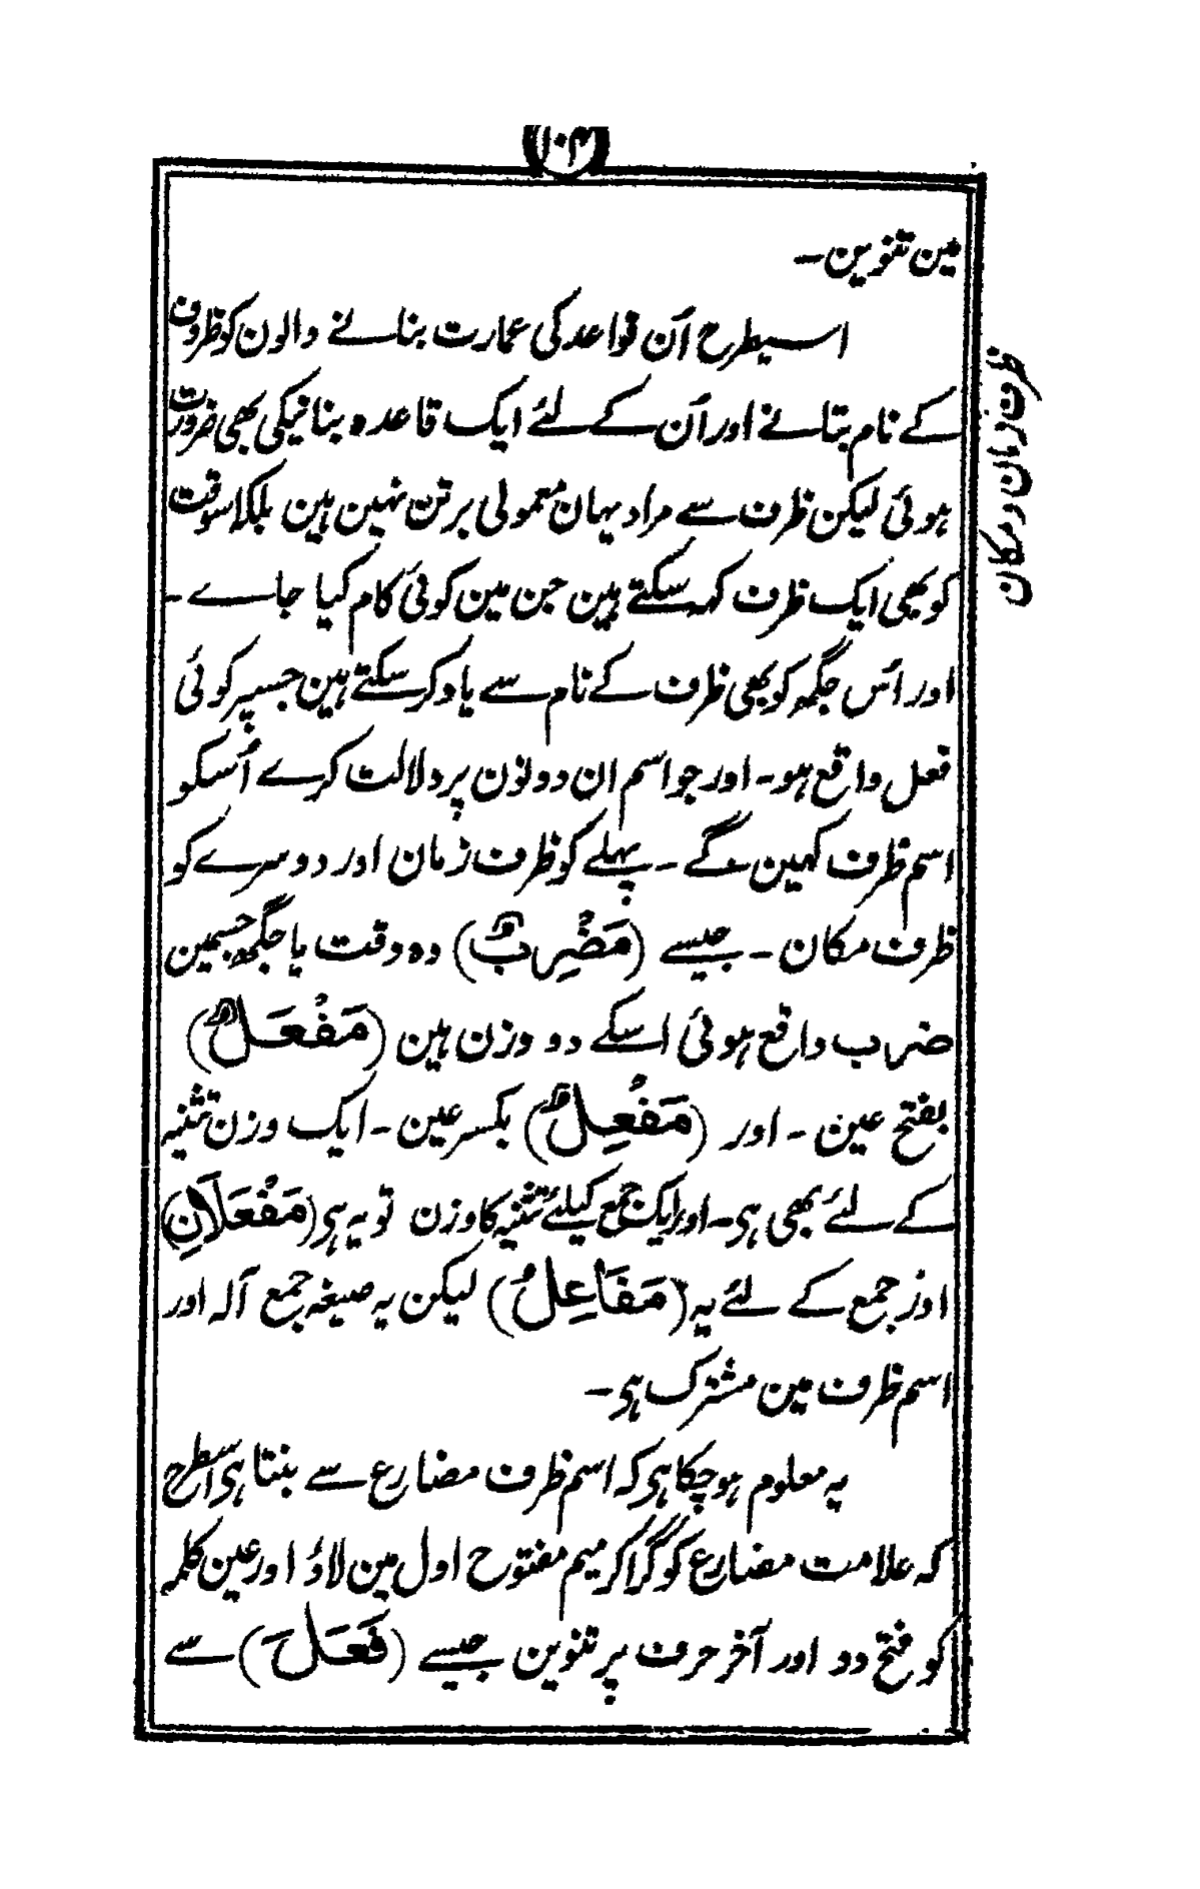 ۱۰۴
مین تنوین ۔
اسیطرح اُن قواعد کی عمارت بنانے والون کو ظروف
کے نام بتانے اور اُن کے لئے ایک قاعدہ بنانیکی بھی ضرورت
ہوئی لیکن ظرف سے مراد یہان معمولی برتن نہین ہین بلکہ اسوقت
کو بھی ایک ظرف کہہ سکتے ہین جن مین کوئی کام کیا جاے ۔
اور اُس جگہہ کو بھی ظرف کے نام سے یاد کر سکتے ہین جسپر کوئی
فعل واقع ہو ۔ اور جو اسم ان دونون پر دلالت کرے اُسکو
اسم ظرف کہین گے ۔ پہلے کو ظرف زمان اور دوسرے کو
ظرف مکان ۔ جیسے (مَضْرِبٌ) وہ وقت یا جگہہ جسمین
ضرب واقع ہوئی اسکے دو وزن ہین (مَفْعَلٌ)
بفتح عین ۔ اور (مَفْعِلٌ) بکسر عین ۔ ایک وزن تثنیہ
کے لئے بھی ہی ۔ اور ایک جمع کیلئے تثنیہ کا وزن تو یہ ہی (مَفْعَلَانِ)
اور جمع کے لئے یہ (مَفَاعِلُ) لیکن یہ صیغہ جمع آلہ اور
اسم ظرف مین مشترک ہی ۔
یہ معلوم ہو چکا ہی کہ اسم ظرف مضارع سے بنتا ہی اسطرح
کہ علامت مضارع کو گرا کر میم مفتوح اول مین لاؤ اور عین کلمہ
کو فتح دو اور آخر حرف پر تنوین جیسے (فَعَلَ) سے
ظرف زمان و مکان